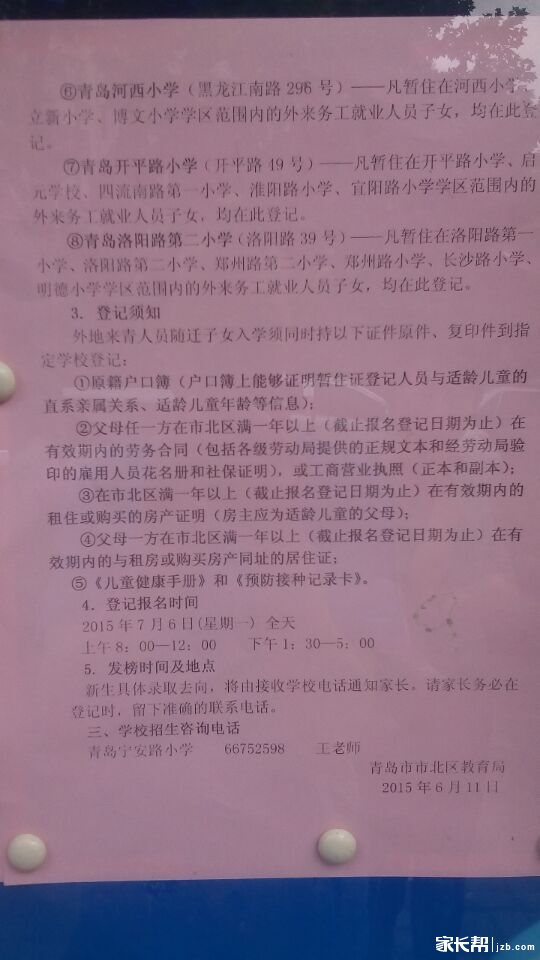 ⑥青岛河西小学（黑龙江南路296号）——凡暂住在河西小学、
立新小学、博文小学学区范围内的外来务工就业人员子女，均在此登
记。
⑦青岛开平路小学（开平路49号）——凡暂住在开平路小学、启
元学校、四流南路第一小学、淮阳路小学、宜阳路小学学区范围内的
外来务工就业人员子女，均在此登记。
⑧青岛洛阳路第二小学（洛阳路39号）——凡暂住在洛阳路第一
小学、洛阳路第二小学、郑州路第二小学、郑州路小学、长沙路小学、
明德小学学区范围内的外来务工就业人员子女，均在此登记。
3．登记须知
外地来青人员随迁子女入学须同时持以下证件原件、复印件到指
定学校登记：
①原籍户口簿（户口簿上能够证明暂住证登记人员与适龄儿童的
直系亲属关系、适龄儿童年龄等信息）；
②父母任一方在市北区满一年以上（截止报名登记日期为止）在
有效期内的劳务合同（包括各级劳动局提供的正规文本和经劳动局验
印的雇用人员花名册和社保证明），或工商营业执照（正本和副本）；
③在市北区满一年以上（截止报名登记日期为止）在有效期内的
租住或购买的房产证明（房主应为适龄儿童的父母）；
④父母一方在市北区满一年以上（截止报名登记日期为止）在有
效期内的与租房或购买房产同址的居住证；
⑤《儿童健康手册》和《预防接种记录卡》。
4．登记报名时间
2015年7月6日(星期一) 全天
上午8：00—12：00 下午1：30—5：00
5．发榜时间及地点
新生具体录取去向，将由接收学校电话通知家长。请家长务必在
登记时，留下准确的联系电话。
三、学校招生咨询电话
青岛宁安路小学 66752598 王老师
青岛市市北区教育局
2015年6月11日
家长帮|jzb.com